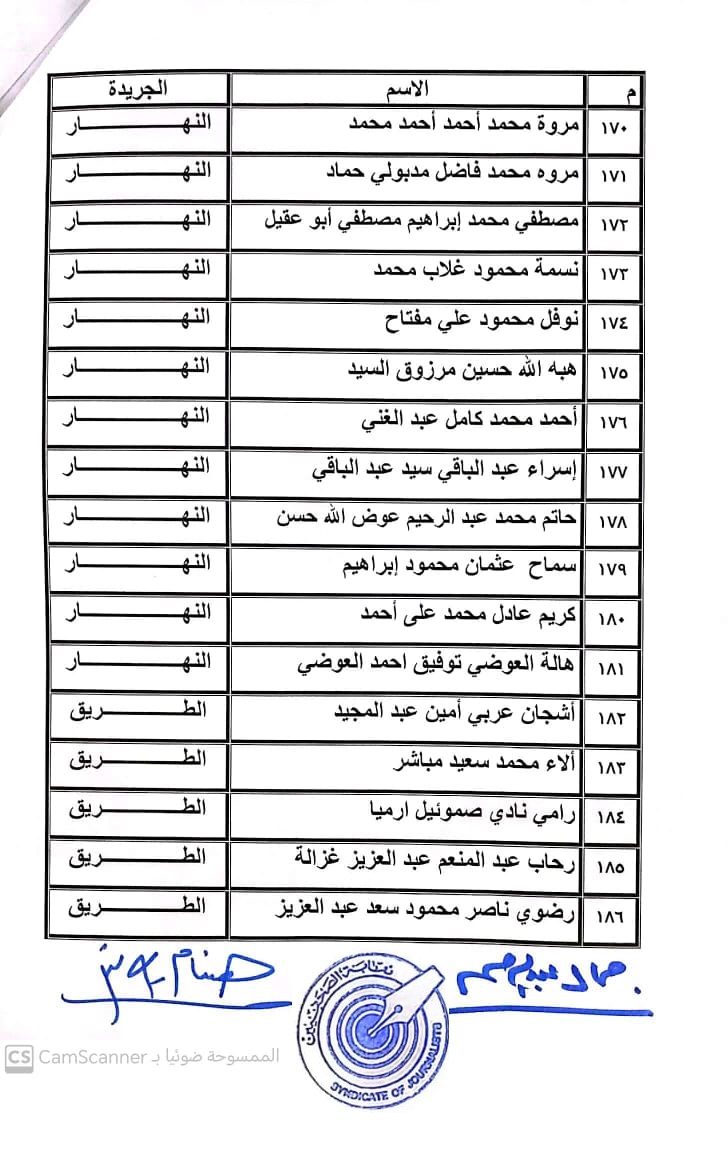 م الاسم الجريدة
١٧٠ مروة محمد أحمد أحمد محمد النهـــــــــار
١٧١ مروه محمد فاضل مدبولي حماد النهـــــــــار
١٧٢ مصطفي محمد إبراهيم مصطفي أبو عقيل النهـــــــــار
١٧٣ نسمة محمود غلاب محمد النهـــــــــار
١٧٤ نوفل محمود علي مفتاح النهـــــــــار
١٧٥ هبه الله حسين مرزوق السيد النهـــــــــار
١٧٦ أحمد محمد كامل عبد الغني النهـــــــــار
١٧٧ إسراء عبد الباقي سيد عبد الباقي النهـــــــــار
١٧٨ حاتم محمد عبد الرحيم عوض الله حسن النهـــــــــار
١٧٩ سماح عثمان محمود إبراهيم النهـــــــــار
١٨٠ كريم عادل محمد على أحمد النهـــــــــار
١٨١ هالة العوضي توفيق احمد العوضي النهـــــــــار
١٨٢ أشجان عربي أمين عبد المجيد الطـــــــــريق
١٨٣ ألاء محمد سعيد مباشر الطـــــــــريق
١٨٤ رامي نادي صموئيل ارميا الطـــــــــريق
١٨٥ رحاب عبد المنعم عبد العزيز غزالة الطـــــــــريق
١٨٦ رضوي ناصر محمود سعد عبد العزيز الطـــــــــريق
نقابة الصحفيين
SYNDICATE OF JOURNALISTS
CS CamScanner الممسوحة ضوئيا بـ